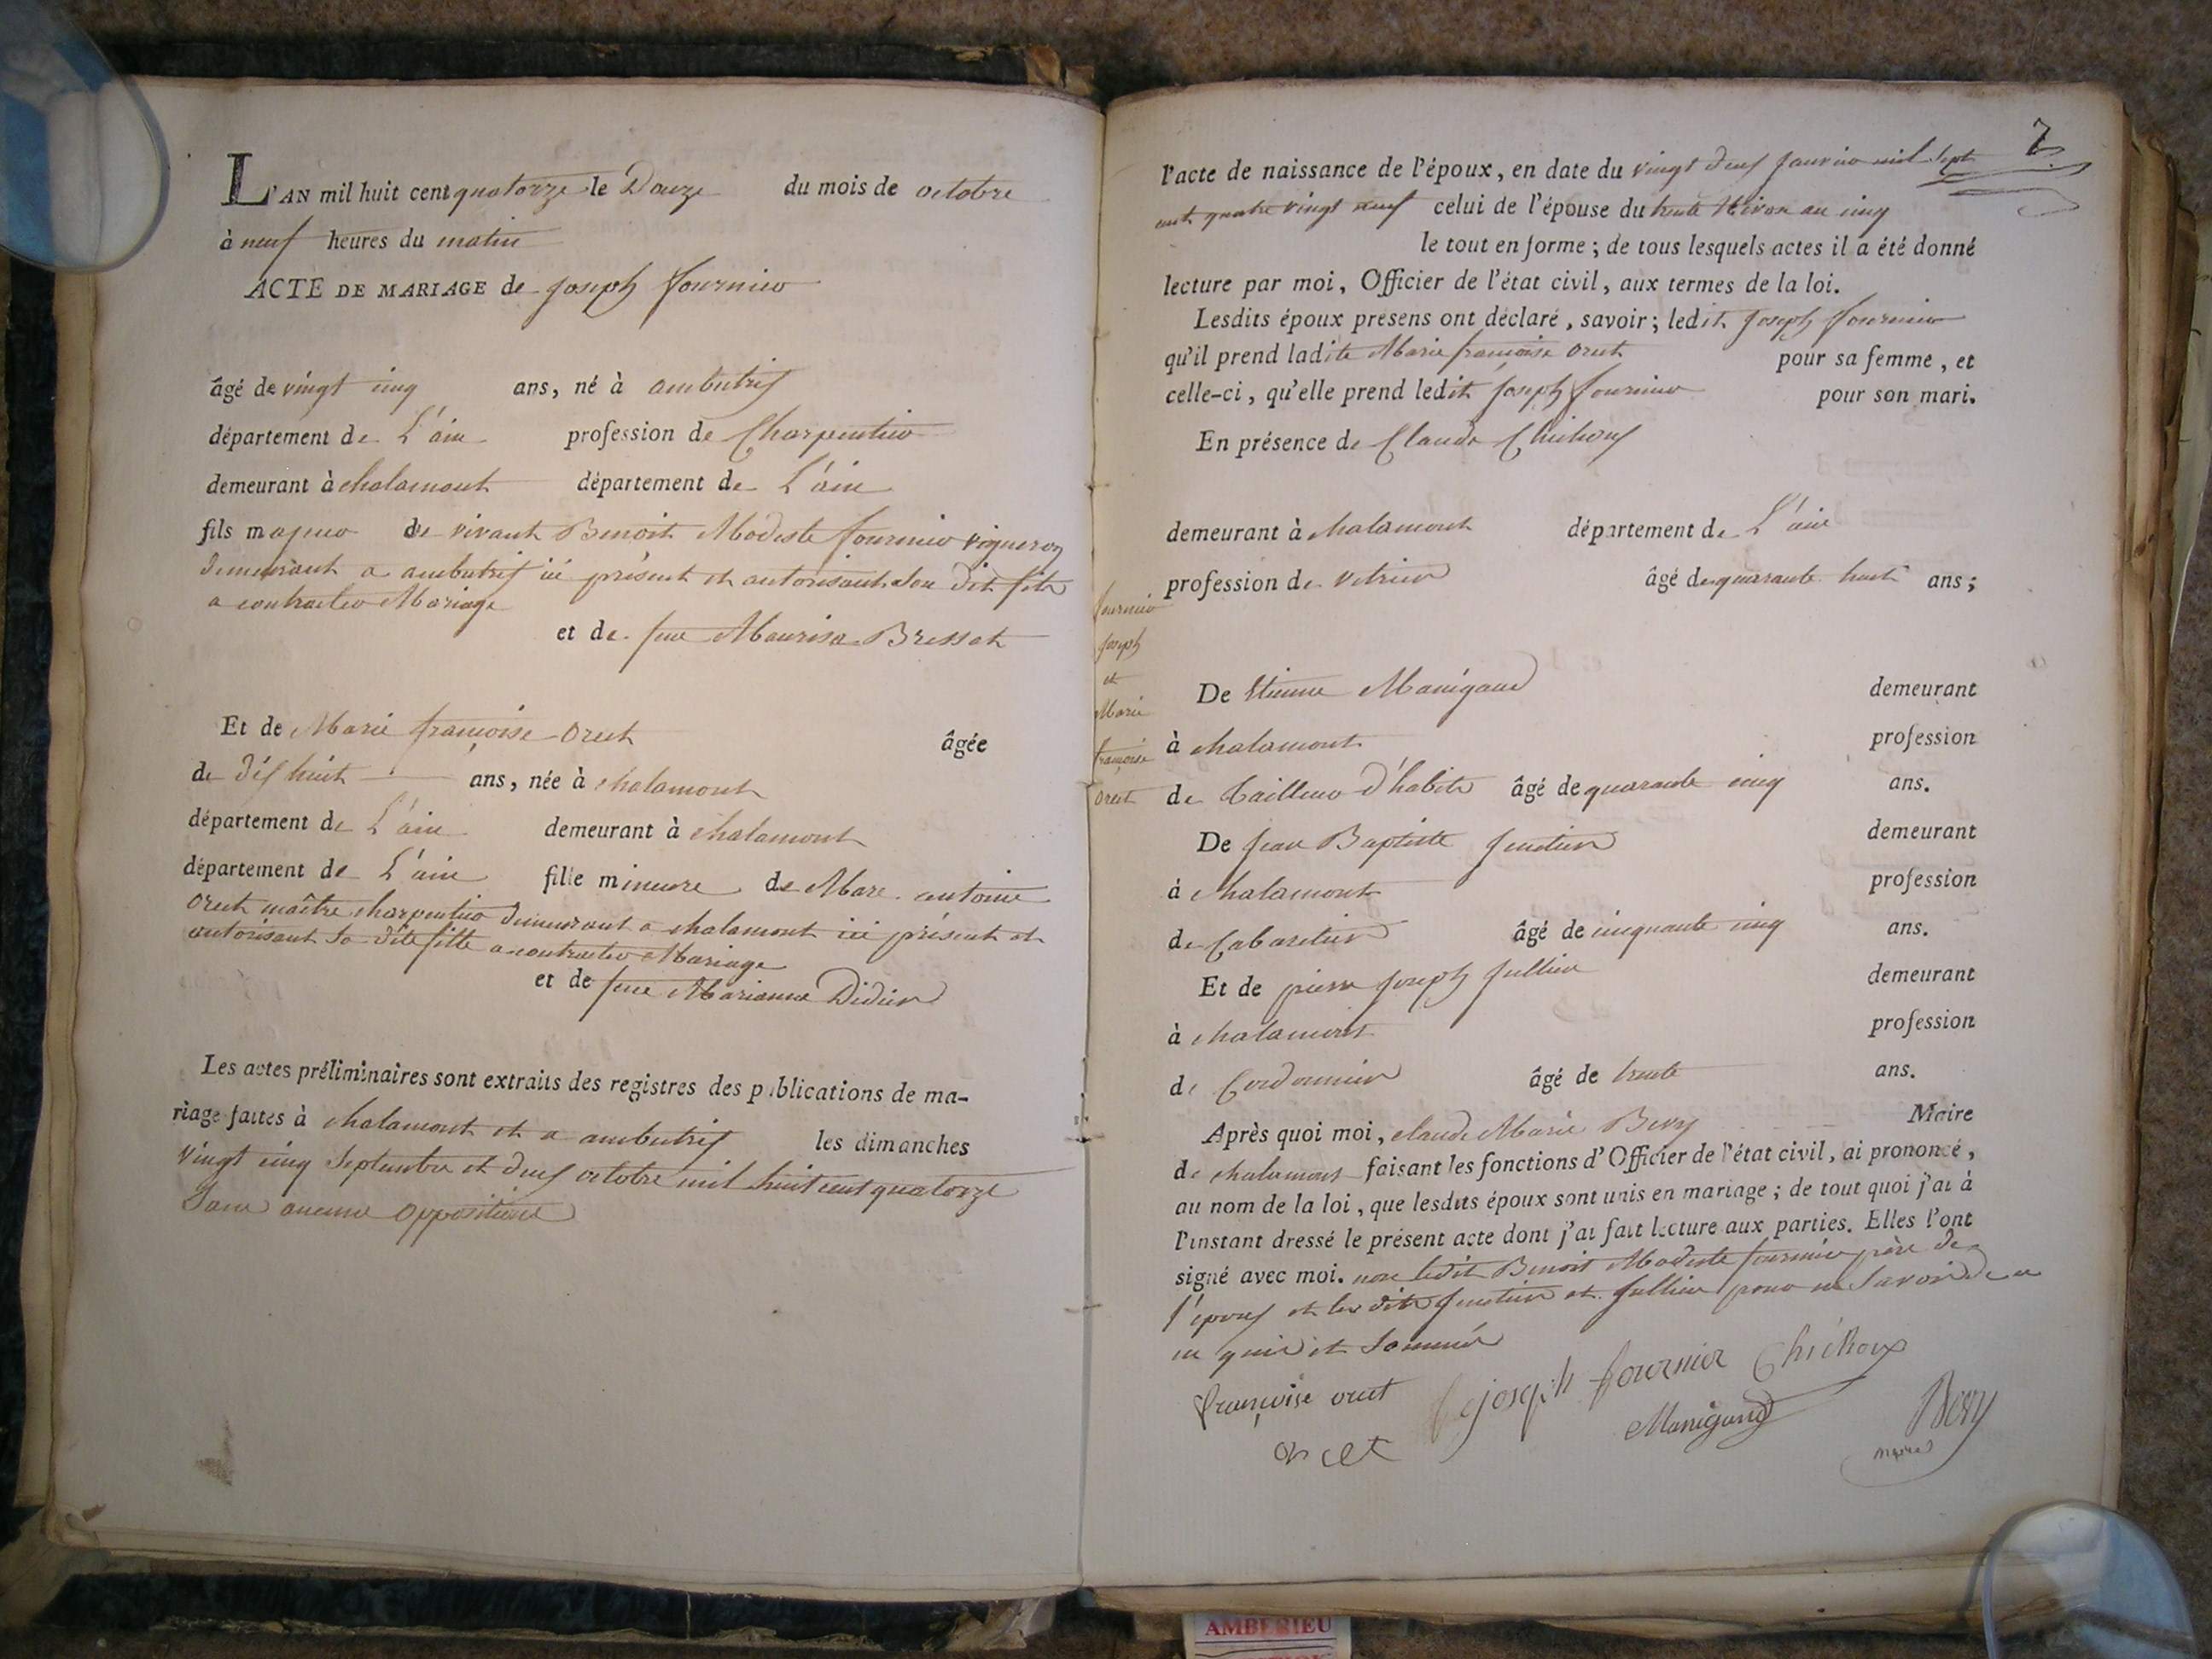 L'AN mil huit cent quatorze le Douze du mois de octobre
à neuf heures du matin
ACTE DE MARIAGE de joseph fournier
âgé de vingt cinq ans, né à ambutrix
département de L'ain profession de Charpentier
demeurant à chalamont département de L'ain
fils majeur de vivant Benoit Modeste fournier vigneron
demeurant a ambutrix ici présent et autorisant son dit fils
a contracter Mariage
et de feue Maurisa Bressat
Et de Marie françoise orcet âgée
de dix huit ans, née à chalamont
département de L'ain demeurant à chalamont
département de L'ain fille mineure de Marc antoine
orcet maître charpentier demeurant a chalamont ici présent et
autorisant sa dite fille a contracter Mariage
et de feue Marianne Didier
Les actes préliminaires sont extraits des registres des publications de ma-
riage faites à chalamont et a ambutrix les dimanches
vingt cinq septembre et deux octobre mil huit cent quatorze
sans aucune opposition
7
l'acte de naissance de l'époux, en date du vingt deux janvier mil sept
cent quatre vingt neuf celui de l'épouse du trente Nivose an cinq
le tout en forme ; de tous lesquels actes il a été donné
lecture par moi, Officier de l'état civil, aux termes de la loi.
Lesdits époux présens ont déclaré, savoir ; ledit joseph fournier
qu'il prend ladite Marie françoise orcet pour sa femme, et
celle-ci, qu'elle prend ledit joseph fournier pour son mari.
En présence de Claude Chichoux
demeurant à chalamont département de L'ain
profession de vitrier âgé de quarante huit ans ;
fournier
joseph
et
Marie
françoise
orcet
De Etienne Manigand demeurant
à chalamont profession
de Tailleur d'habits âgé de quarante cinq ans.
De jean Baptiste demeurant
à chalamont profession
de Cabaretier âgé de cinquante cinq ans.
Et de pierre joseph jullien demeurant
à chalamont profession
de Cordonnier âgé de trente ans.
Après quoi moi, claude Marie Bery Maire
de chalamont faisant les fonctions d'Officier de l'état civil, ai prononcé,
au nom de la loi, que lesdits époux sont unis en mariage ; de tout quoi j'ai à
l'instant dressé le présent acte dont j'ai fait lecture aux parties. Elles l'ont
signé avec moi. non ledit Benoit Modeste fournier père de
l'époux et les dits et jullien pour ne savoir de ce
en quis et sommés
françoise orcet joseph fournier Chichoux
orcet Manigand Bery
maire
AMBERIEU